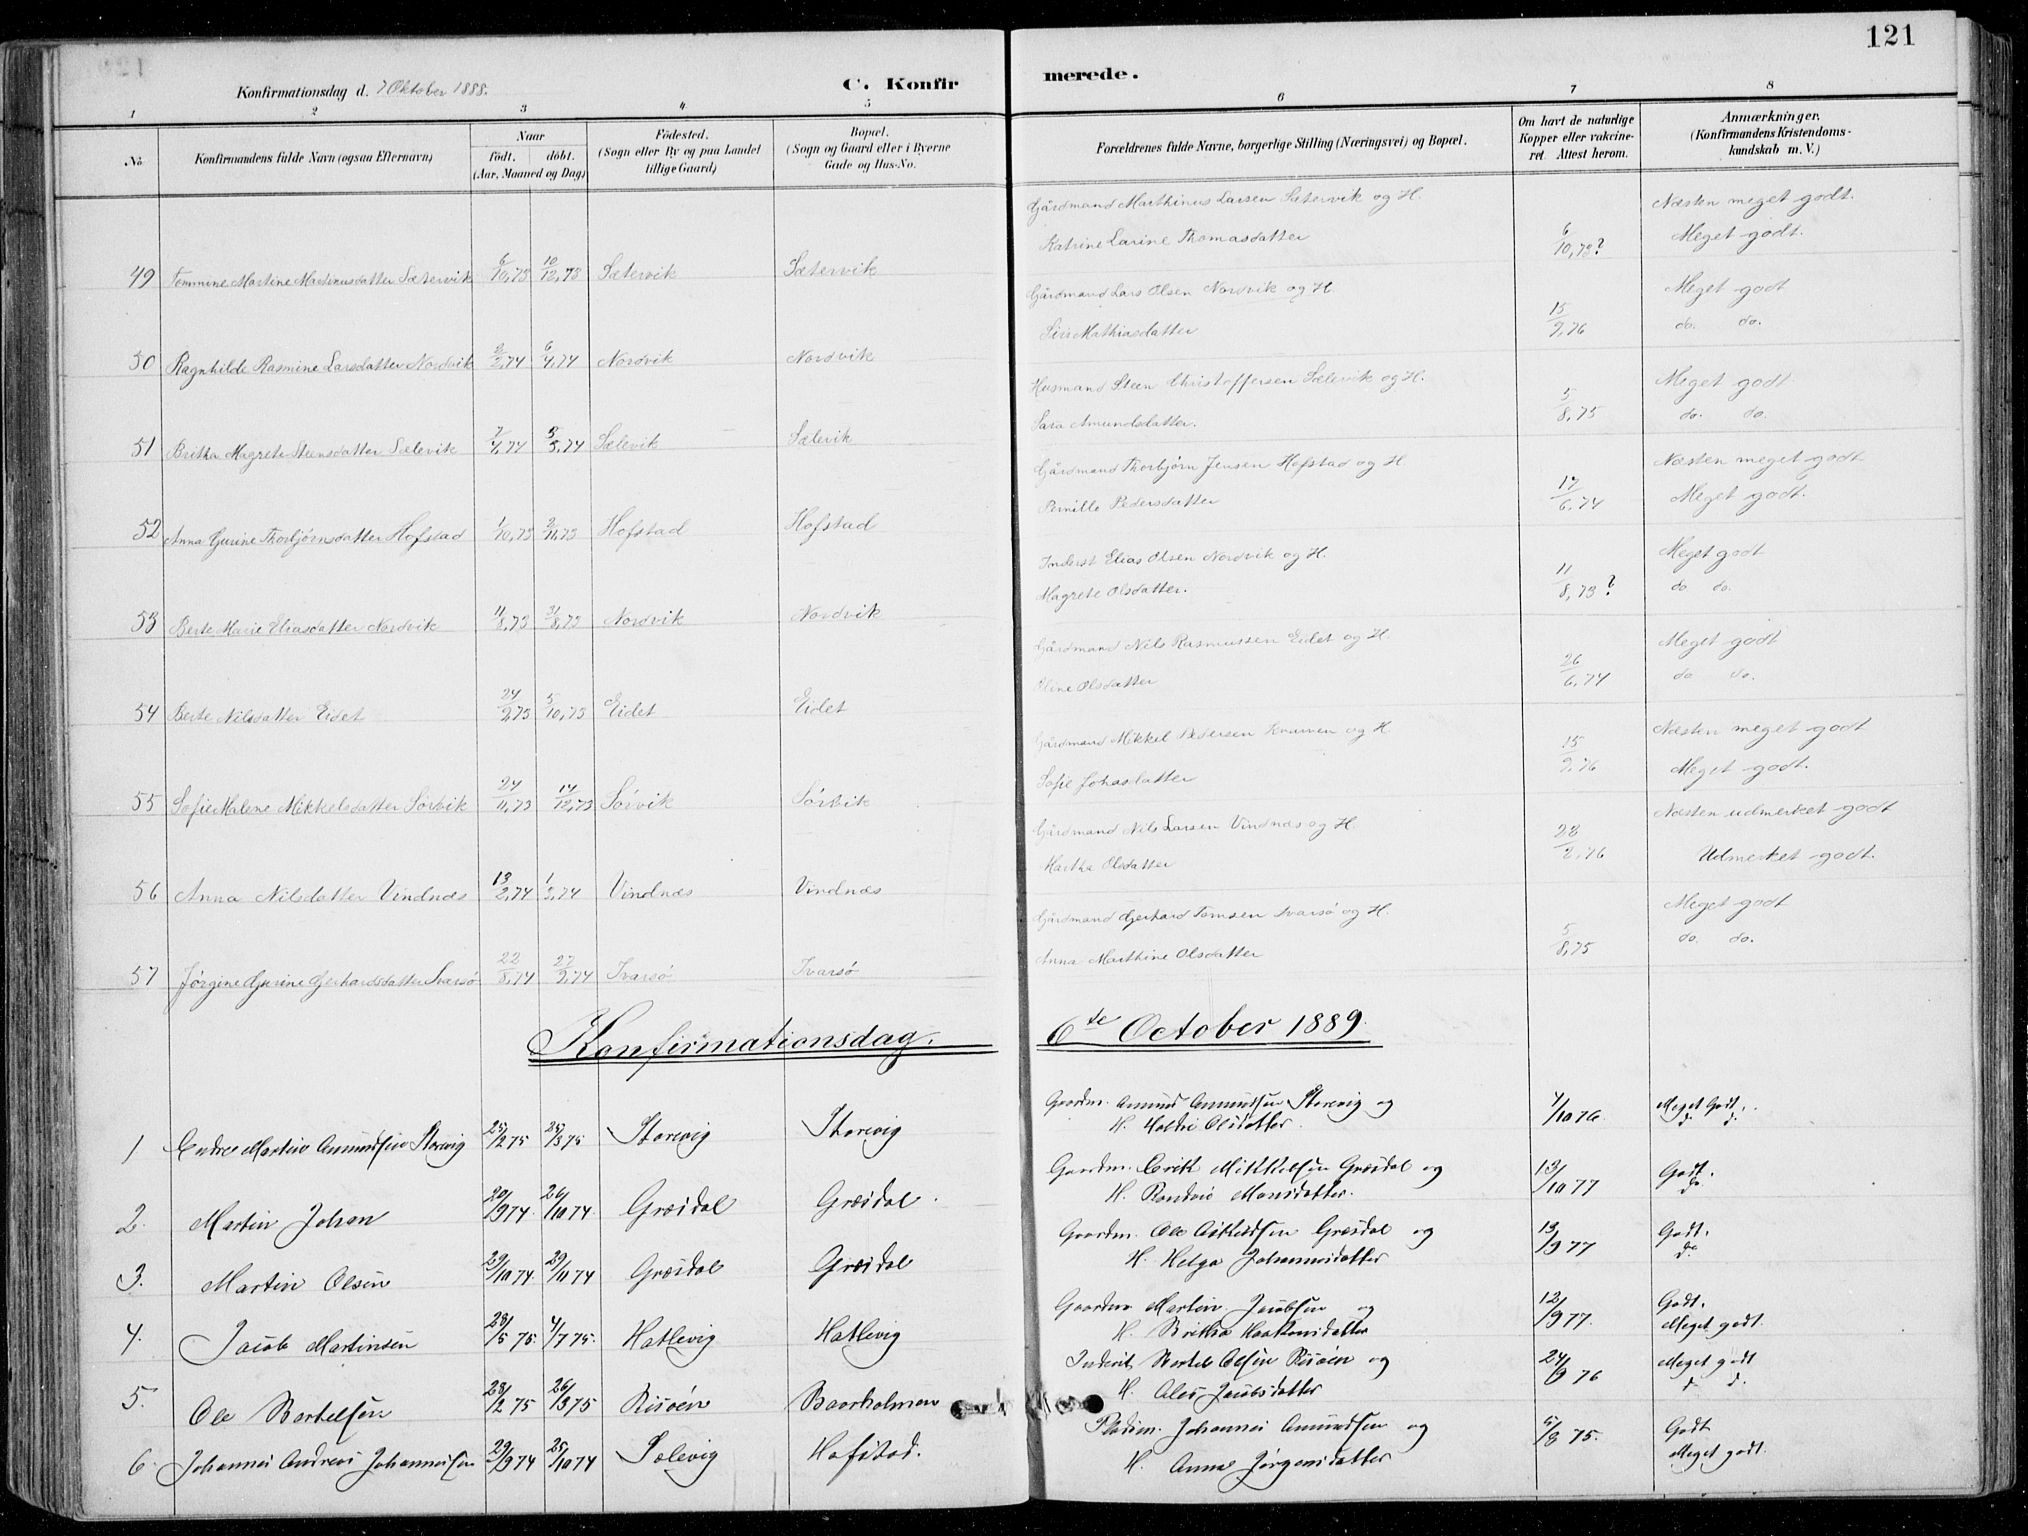 121
Konfirmationsdag d. 7 Oktober 1888.
C. Konfirmerede.
1 2 3 4 5 6 7 8
No
Konfirmandens fulde Navn (ogsaa Efternavn)
Naar
født. døbt.
(Aar, Maaned og Dag)
Fødested.
(Sogn eller By og paa Landet
tillige Gaard)
Bopæl.
(Sogn og Gaard eller i Byerne
Gade og Hus-No.
Forældrenes fulde Navne, borgerlige Stilling (Næringsvei) og Bopæl.
Om havt de naturlige
Kopper eller vakcine-
ret. Attest herom.
Anmærkninger.
(Konfirmandens Kristendoms-
kundskab m. V.)
Gårdmand Marthinus Larsen Sætervik og H. Næsten meget godt.
Katrine Larine Thomasdatter 6/10,73? Meget godt.
49 Martine Martinusdatter Sætervik 6/10,73 10/12,73 Sætervik Sætervik
Gårdmand Lars Olsen Nordvik og H. Meget godt
Siri Mathiasdatter 15/9,76 do. do.
50 Ragnhilde Rasmine Larsdatter Nordvik 2/2,74 6/4,74 Nordvik Nordvik
Husmand Steen Christoffersen Sælevik og H. Meget godt
Sara Amundsdatter. 5/8,75 do. do.
51 Britha Magrete Steensdatter Sælevik 7/4,74 5/5,74 Sælevik Sælevik
Gårdmand Thorbjørn Jensen Hofstad og H. Næsten meget godt
Pernille Pedersdatter 17/6,74 Meget godt.
52 Anna Gurine Thorbjørnsdatter Hofstad 1/10,73 2/11,73 Hofstad Hofstad
Inderst Elias Olsen Nordvik og H. Meget godt
Magrete Olsdatter. 11/8,73? do do.
53 Berte Marie Eliasdatter Nordvik 11/8,73 31/8,73 Nordvik Nordvik
Gårdmand Nils Rasmussen Eidet og H. Meget godt
Oline Olsdatter 26/6,74 do do.
54 Berte Nilsdatter Eidet 24/9,73 5/10,73 Eidet Eidet
Gårdmand Mikkel Pedersen og H. Næsten meget godt
Sofie Johasdatter 15/9,76 Meget godt.
55 Sofie Malene Mikkelsdatter Sørvik 24/11,73 14/12,73 Sørvik Sørvik
Gårdmand Nils Larsen Vindnæs og H. Næsten udmerket godt
Martha Olsdatter 28/2,76 Udmerket godt.
56 Anna Nilsdatter Vindnæs 13/2,74 1/3,74 Vindnæs Vindnæs
Gårdmand Gerhard Tomsen Ivarsø og H. Meget godt
Anna Marthine Olsdatter 5/8,75 do. do.
57 Jørgine Gurine Gerhardsdatter Ivarsø 22/8,74 27/9,74 Ivarsø Ivarsø
Konfirmationsdag. 6te October 1889.
Gaardm. Amund Amundsen Storevig og Meget Godt.
H. Olsdatter. 4/10 76 d. d.
1 Endre Martin Amundsen Storevig 25/2 75 29/3 75 Storevig Storevig
Gaardm. Erik Mikkelsen Græsdal og 13/10 77 Godt.
H. Randvie Monsdatter. do.
2. Martin Johan 20/9 74. 26/10 74. Græsdal Græsdal.
Gaardm. Ole Græsdal og 13/9 77 Godt.
H. Helga Johannesdatter do
3. Martin Olsen 29/10 74. 29/11 74 Græsdal Græsdal
Gaardm Martin Jacobsen og 12/9 77. Godt.
H. Britha Haakonsdatter Meget godt.
4. Jacob Martinsen 23/5 75. 4/7 75. Hatlevig Hatlevig
Inderst Bertel Olsen Risøen og 24/9 76 Meget godt
H. Jacobsdatter d. d.
5. Ole Bertelsen 23/2 75 26/3 75 Risøen Baarholmen
Johannes Amundsen og 5/8 75. Godt
H. Anne Jørgensdatter Meget godt.
6. Johannes Andreas Johannessen 29/9 74 25/10 74 Sælevig Hofstad.